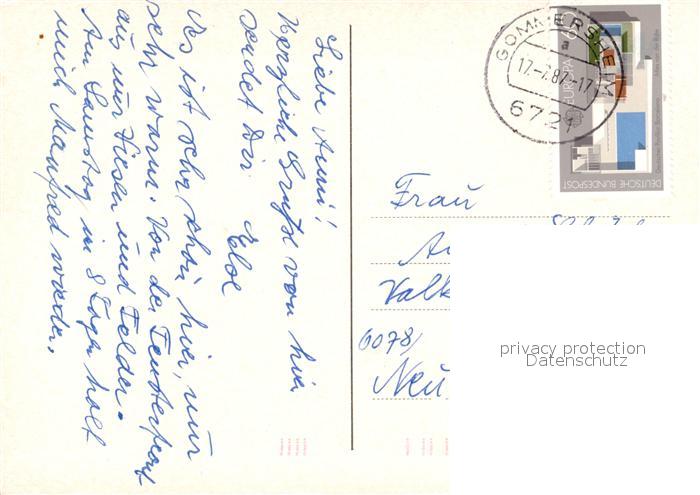 Liebe Anni!
Herzliche Grüße von hier
sendet Dir Eloe
Es ist sehr schön hier, nur
sehr warm. Von der Fensterfront
aus nur Wiesen und Felder.
Am Samstag in 8 Tagen holt
mich Manfred wieder.
GOMMERSHEIM
17.-7.87-17
a
6721
60
EUROPA
DEUTSCHE BUNDESPOST
Frau
Valk
6078/
Neu
privacy protection
Datenschutz